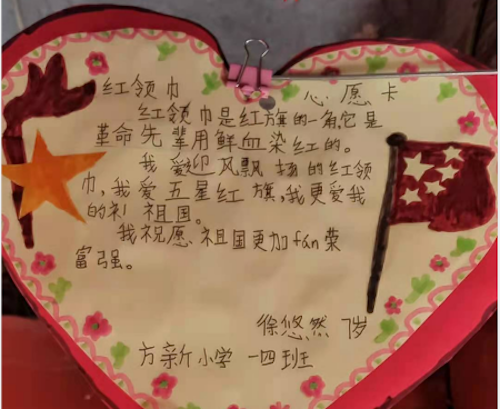 红领巾
心愿卡
红领巾是红旗的一角,它是
革命先辈用鲜血染红的。
我爱迎风飘扬的红领
巾,我爱五星红旗,我更爱我
的祖国。
我祝愿祖国更加fán荣
富强。
徐悠然 7岁
方新小学 一四班